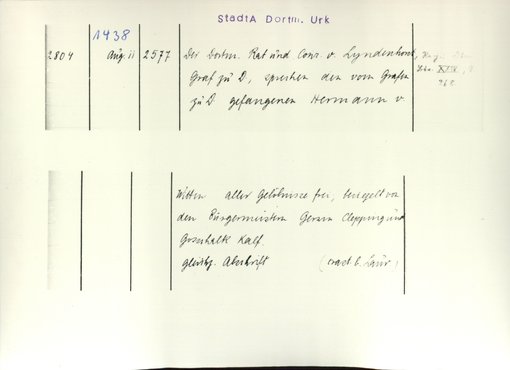 StadtA Dortm. Urk
1438
2804 Aug. 11 2577 Der Dortm. Rat und Conr. v. Lyndenhorst,
Graf zu D, sprechen den vom Grafen
zu D gefangenen Hermann v.
Witten aller Gelöbnisse frei, besiegelt von
den Bürgermeistern Gerwin Clepping und
Goschalk Kalf.
gleichz. Abschrift